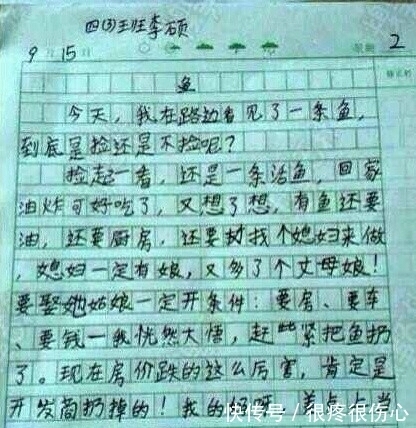 四(3)班 李硕
9月15日 星期2
鱼
今天，我在路边看见了一条鱼，
到底是捡还是不捡呢？
捡起一看，还是一条活鱼，回家
油炸可好吃了，又想了想，有鱼还要
油，还要厨房，还要找个媳妇来做
，媳妇一定有娘，又多了个丈母娘！
要娶她姑娘一定开条件：要房、要车
、要钱一我恍然大悟，赶紧把鱼扔
了。现在房价跌的这么厉害，肯定是
开发商扔掉的！我的好呀，差点上当
快传号／很疼很伤心